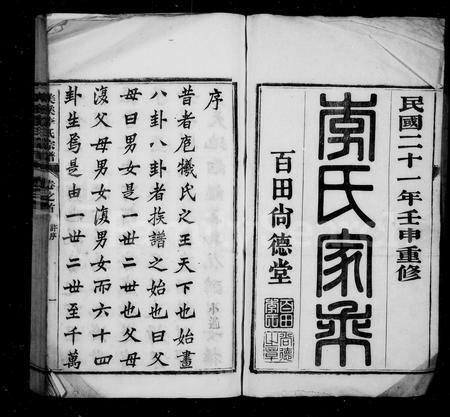 民國二十一年壬申重修
李氏家乘
百田尙德堂
百田尙德
李氏之章
序
昔者庖犧氏之王天下也始畫
八卦八卦者族譜之始也曰父
母曰男女是一世二世也父母
復父母男女復男女而六十四
卦生焉是由一世二世至千萬
李氏宗譜
卷之首
序
一